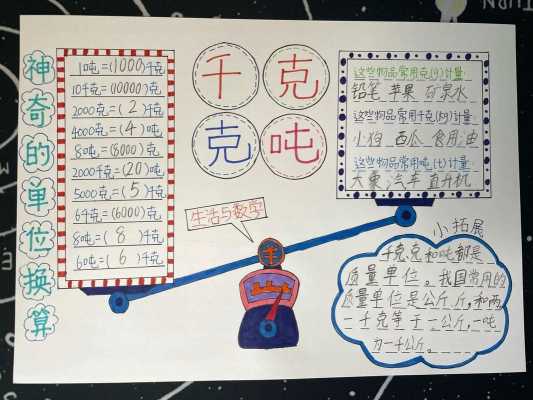 神奇的单位换算
1吨=(1000)千克
10千克=(10000)克
2000克=(2)千克
4000克=(4)吨
8吨=(8000)克
2000千克=(20)吨
5000克=(5)千克
6千克=(6000)克
8吨=(8)千克
6吨=(6)千克
千克
克吨
生活与数学
千
这些物品常用克(g)计量
铅笔 苹果 矿泉水
这些物品常用千克(kg)计量
小狗 西瓜 食用油
这些物品常用吨(t)计量
大象 汽车 直升机
小拓展
千克、克和吨都是
质量单位。我国常用的
质量单位是公斤,斤,和两
一千克等于一公斤,一吨
为一千公斤。
TURN